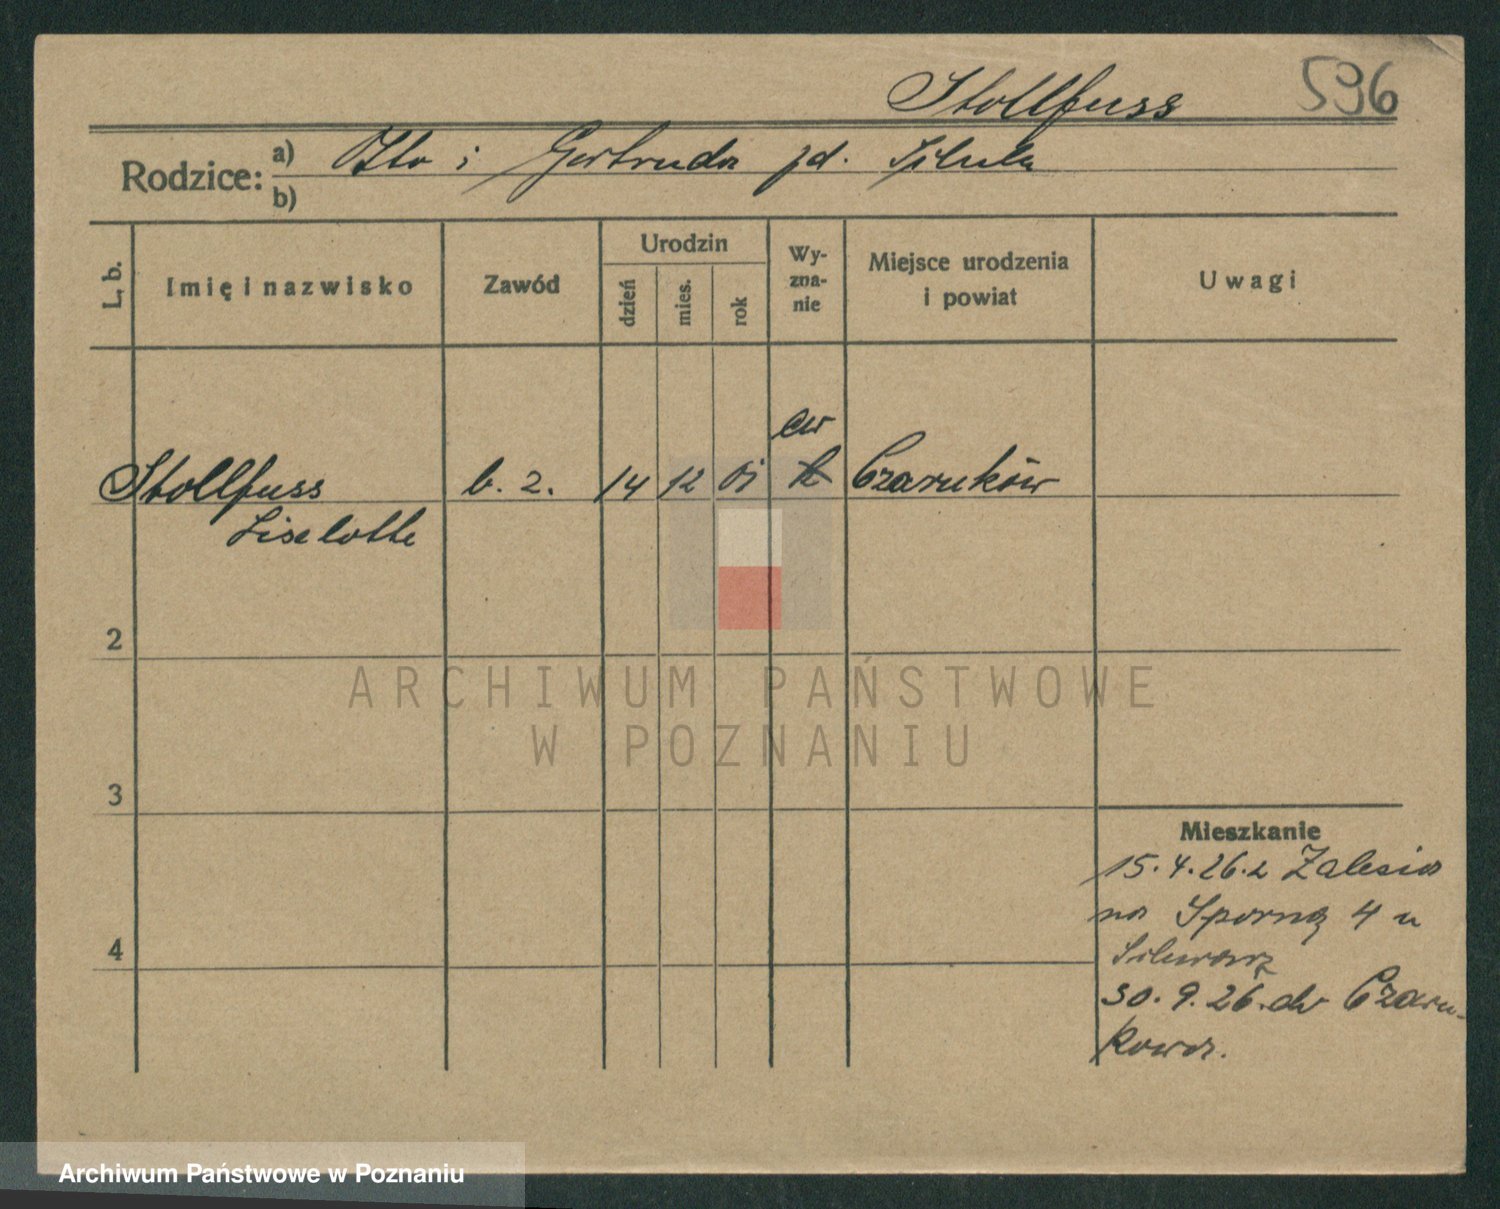 Stollfuss 596
Rodzice: a) Otto i Gertruda zd.
b)
L. b.
Imię i nazwisko
Zawód
Urodzin
dzień
mies.
rok
Wy-
zna-
nie
Miejsce urodzenia
i powiat
Uwagi
ew
Stollfuss b. z. 14 12 01 k Czarnków
Liselotte
2
3
4
ARCHIWUM PAŃSTWOWE
W POZNANIU
Mieszkanie
15.4.26 z Zalesia
na Sporną 4 u
30.9.26. do Czarn-
kowa.
Archiwum Państwowe w Poznaniu